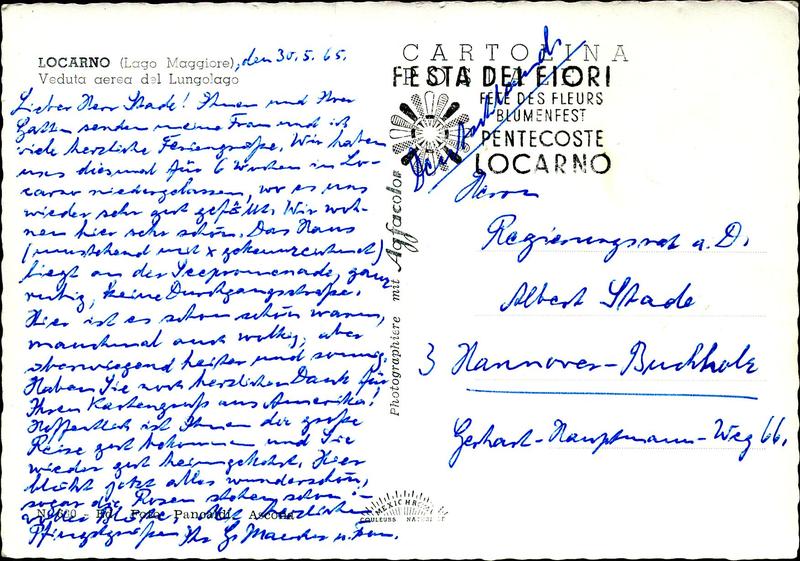 LOCARNO (Lago Maggiore), den 30.5.65.
Veduta aerea del Lungolago
Lieber Herr Stade! Ihnen und Ihrer
Gattin senden meine Frau und ich
viele herzliche Feriengrüße. Wir haben
uns diesmal für 6 Wochen in Lo-
carno niedergelassen, wo es uns
wieder sehr gut gefällt. Wir woh-
nen hier sehr schön. Das Haus
(umstehend mit x gekennzeichnet)
liegt an der Seepromenade, ganz
ruhig, keine Durchgangsstraße.
Hier ist es schon schön warm,
manchmal auch wolkig, aber
überwiegend heiter und sonnig.
Haben Sie noch herzlichen Dank für
Ihren Kartengruß aus Amerika!
Hoffentlich ist Ihnen die große
Reise gut bekommen und Sie
wieder gut heimgekehrt. Hier
blüht jetzt alles wunderschön,
sogar die Rosen stehen schon in
voller Blüte. Mit herzlichen
Pfingstgrüßen Ihr G. u. Frau.
Ed. Foto Pancaldi, Ascona
Photographiere mit Agfacolor
CARTOLINA
FESTA DEI FIORI
FÊTE DES FLEURS
BLUMENFEST
PENTECOSTE
LOCARNO
Deutschland
Herrn
Regierungsrat a.D.
Albert Stade
3 Hannover-Buchholz
Gerhart-Hauptmann-Weg 66.
MEXICHROME
COULEURS NATURELLES